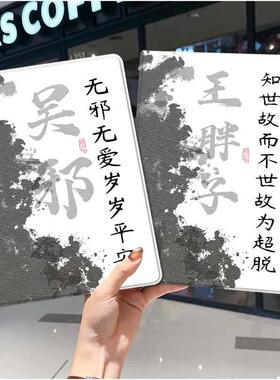 COFF
吴邪
无邪无爱岁岁平安
王胖子
知世故而不世故为超脱